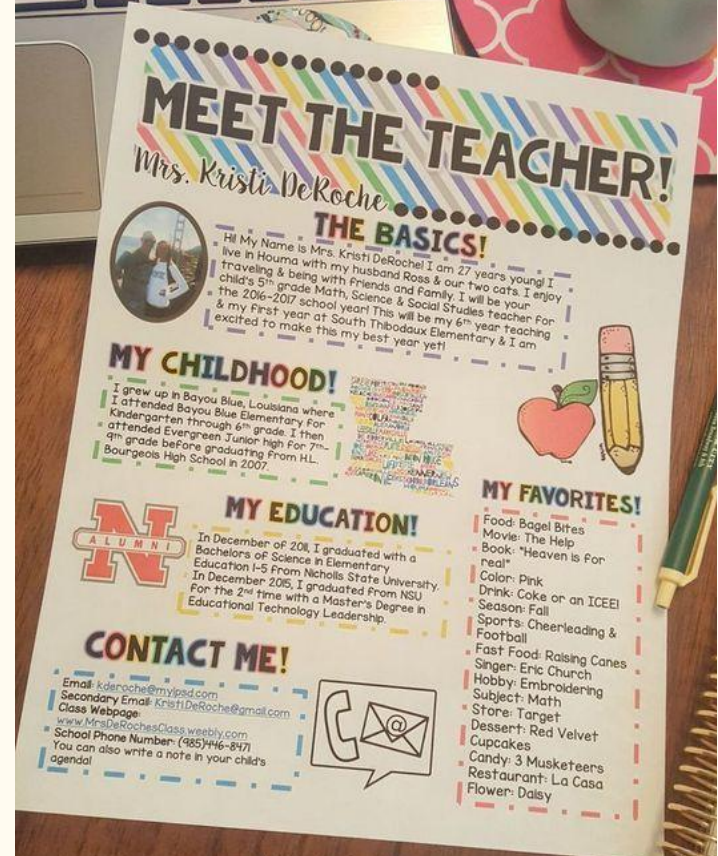 MEET THE TEACHER!
Mrs. Kristi DeRoche
THE BASICS!
Hi! My Name is Mrs. Kristi DeRoche! I am 27 years young! I
live in Houma with my husband Ross & our two cats. I enjoy
traveling & being with friends and family. I will be your
child's 5th grade Math, Science & Social Studies teacher for
the 2016-2017 school year! This will be my 6th year teaching
& my first year at South Thibodaux Elementary & I am
excited to make this my best year yet!
MY CHILDHOOD!
I grew up in Bayou Blue, Louisiana where
I attended Bayou Blue Elementary for
Kindergarten through 6th grade. I then
attended Evergreen Junior high for 7th-
9th grade before graduating from H.L.
Bourgeois High School in 2007.
MY EDUCATION!
N
ALUMNI
In December of 2011, I graduated with a
Bachelors of Science in Elementary
Education 1-5 from Nicholls State University.
In December 2015, I graduated from NSU
for the 2nd time with a Master's Degree in
Educational Technology Leadership.
MY FAVORITES!
Food: Bagel Bites
Movie: The Help
Book: "Heaven is for
real"
Color: Pink
Drink: Coke or an ICEE!
Season: Fall
Sports: Cheerleading &
Football
Fast Food: Raising Canes
Singer: Eric Church
Hobby: Embroidering
Subject: Math
Store: Target
Dessert: Red Velvet
Cupcakes
Candy: 3 Musketeers
Restaurant: La Casa
Flower: Daisy
CONTACT ME!
Email: kderoche@mylpsd.com
Secondary Email: KristiDeRoche@gmail.com
Class Webpage:
www.MrsDeRochesClass.weebly.com
School Phone Number: (985)446-8471
You can also write a note in your child's
agenda!
@